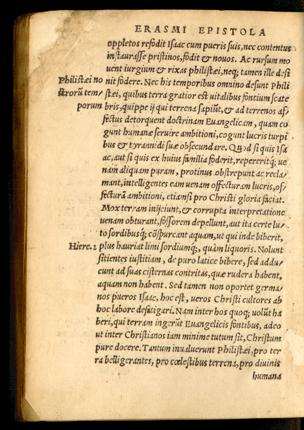 ERASMI EPISTOLA
oppletos refodit Isaac cum pueris suis, nec contentus
instaurasse pristinos, fodit & nouos. Ac rursum mo
uent iurgium & rixas philistæi, neq; tamen ille desi
Philistæi no nit fodere. Nec his temporibus omnino desunt Phili
strorū tem/ stæi, quibus terra gratior est uitalibus fontium scate
porum bris, quippe ij qui terrena sapiūt, & ad terrenos af/
fectus detorquent doctrinam Euangelicam, quam co
gunt humanæ seruire ambitioni, cogunt lucris turpi
bus & tyrannidi suæ obsecundare. Qđ si quis Isa
ac, aut si quis ex huius familia foderit, repereritq; ue
nam aliquam puram, protinus obstrepunt ac recla/
mant, intelligentes eam uenam offecturam lucris, of/
fecturā ambitioni, etiamsi pro Christi gloria faciat.
Mox terram inijciunt, & corrupta interpretatione
uenam obturant, fossorem depellunt, aut ita certe lu/
to sordibusq; cōspurcant aquam, ut qui inde biberit,
Hiere. 2 plus hauriat limi sordiumq;, quàm liquoris. Nolunt
sitientes iustitiam, de puro latice bibere, sed addu/
cunt ad suas cisternas contritas, quæ rudera habent,
aquam non habent. Sed tamen non oportet germa/
nos pueros Isaac, hoc est, ueros Christi cultores ab
hoc labore defatigari. Nam inter hos quoq; uolūt ha
beri, qui terram ingerūt Euangelicis fontibus, adeo
ut inter Christianos iam minime tutum sit, Christum
pure docere. Tantum inualuerunt Philistæi, pro ter
ra belligerantes, pro cœlestibus terrena, pro diuinis
humana